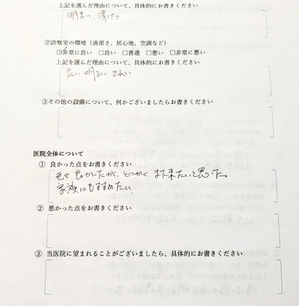 上記を選んだ理由について、具体的にお書きください
明るい 清けつ
②診察室の環境（清潔さ、居心地、空調など）
☑非常に良い □良い □普通 □悪い □非常に悪い
上記を選んだ理由について、具体的にお書きください
広い 明るい きれい
③その他の設備について、何かございましたらお書きください
医院全体について
① 良かった点をお書きください
色々 良かったが、とにかく また来たいと思った。
家族にもすすめたい
② 悪かった点をお書きください
③ 当医院に望まれることがございましたら、具体的にお書きください